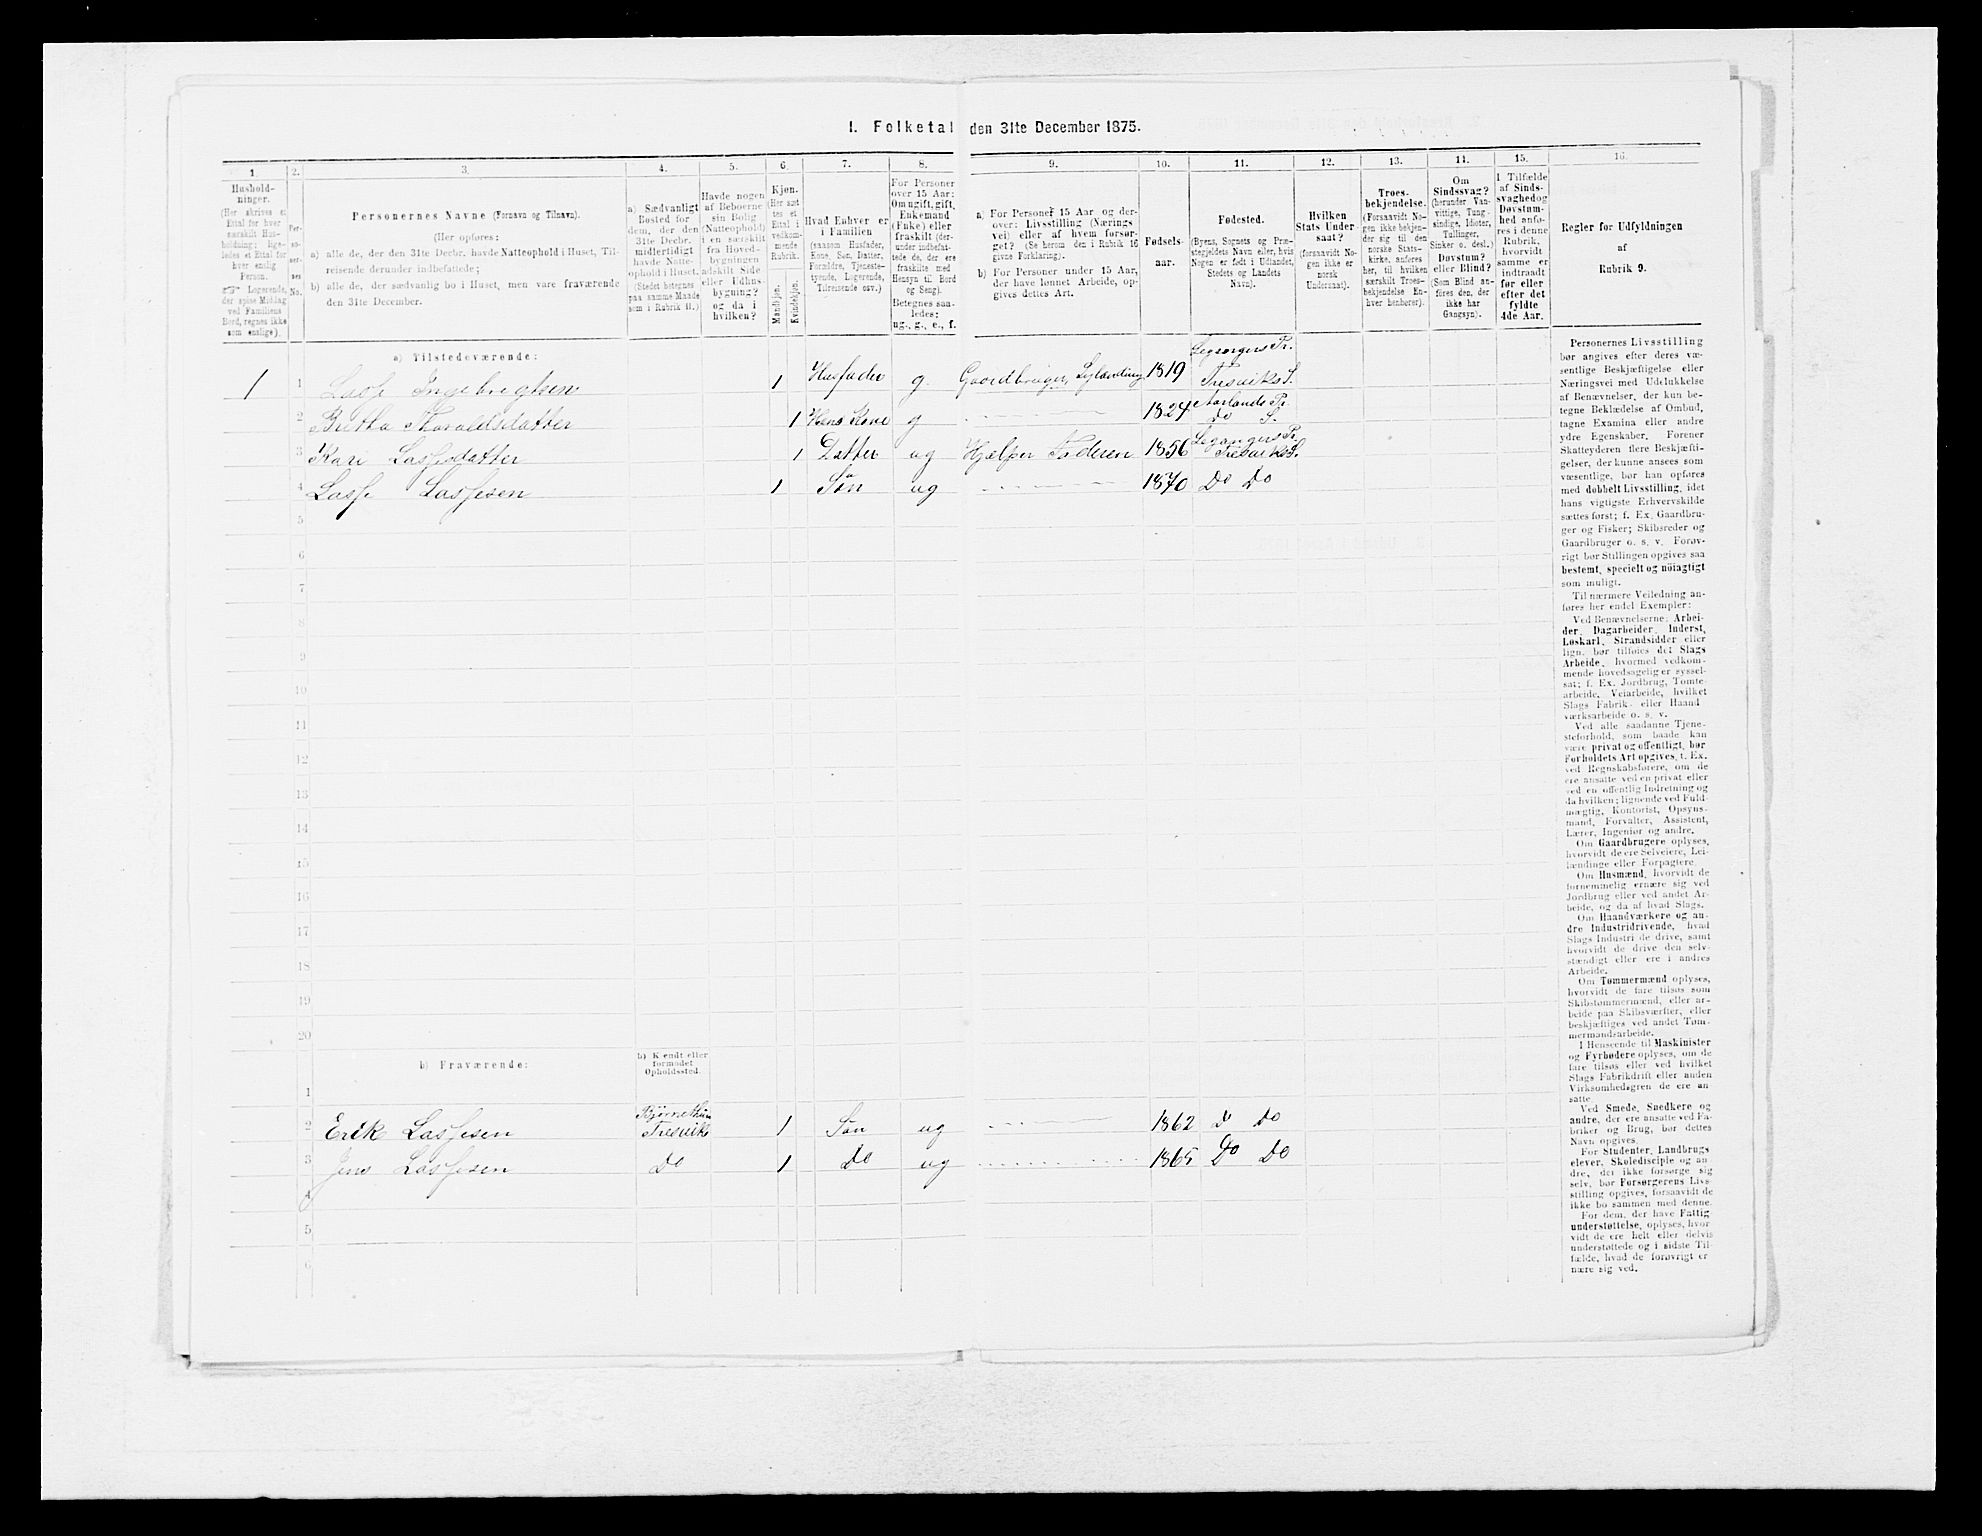 1. Folketal den 31te December 1875.
1. 2. 3. 4. 5. 6. 7. 8. 9. 10. 11. 12. 13. 14. 15. 16.
Hushold-
ninger.
(Her skrives et
Ettal for hver
særskilt Hus-
holdning; lige-
ledes et Ettal for
hver enslig
Person.
☞ Logerende,
der spise Middag
ved Familiens
Bord, regnes ikke
som enslige).
Per-
so-
ner-
nes
No.
Personernes Navne (Fornavn og Tilnavn).
(Her opføres:
a) alle de, der den 31te Decbr. havde Natteophold i Huset, Til-
reisende derunder indbefattede;
b) alle de, der sædvanlig bo i Huset, men vare fraværende
den 31te December.
a) Sædvanligt
Bosted for
dem, der den
31te Decbr.
midlertidigt
havde Natte-
ophold i Huset.
(Stedet betegnes
paa samme Maade
som i Rubrik 11.)
Havde nogen
af Beboerne
sin Bolig
(Natteophold)
i en særskilt
fra Hoved-
bygningen
adskilt Side-
eller Udhus-
bygning?
og da i
hvilken?
Kjøn.
(Her sæt-
tes et
Ettal i
vedkom-
mende
Rubrik.
Mandkjøn.
Kvindekjøn.
Hvad Enhver er
i Familien
(saasom Husfader,
Kone, Søn, Datter,
Forældre, Tjeneste-
tyende, Logerende,
Tilreisende osv.)
For Personer
over 15 Aar:
Om ugift, gift,
Enkemand
(Enke) eller
fraskilt (der-
under indbefat-
tede de, der ere
fraskilte med
Hensyn til Bord
og Seng).
Betegnes saa-
ledes:
ug., g., e., f.
a) For Personer 15 Aar og der-
over: Livsstilling (Nærings-
vei) eller af hvem forsør-
get? (Se herom den i Rubrik 16
givne Forklaring).
b) For Personer under 15 Aar,
der have lønnet Arbeide, op-
gives dettes Art.
Fødsels-
aar.
Fødested.
(Byens, Sognets og Præ-
stegjeldets Navn eller, hvis
Nogen er født i Udlandet,
Stedets og Landets
Navn).
Hvilken
Stats Under-
saat?
(forsaavidt No-
gen ikke er
norsk
Undersaat).
Troes-
bekjendelse.
(Forsaavidt No-
gen ikke bekjen-
der sig til den
norske Stats-
kirke, anføres
her, til hvilken
særskilt Troes-
bekjendelse En-
hver henhører).
Om
Sindssvag?
(herunder Van-
vittige, Tung-
sindige, Idioter,
Tullinger,
Sinker o. desl.)
Døvstum?
eller Blind?
(Som Blind an-
føres den, der
ikke har
Gangsyn).
I Tilfælde
af Sinds-
svaghed og
Døvstum-
hed anfø-
res i denne
Rubrik,
hvorvidt
samme er
indtraadt
før eller
efter det
fyldte
4de Aar.
Regler for Udfyldningen
af
Rubrik 9.
a) Tilstedeværende:
1 1 Lasse Ingebregtsen 1 Husfader g. Gaardbruger, 1819 Tresviks S.
2 Bretha Thoraldsdatter 1 Hans Kone g 1824 Aurlands Pr. Do S.
3 Kari Lassesdatter 1 Datter ug Hjelper Faderen 1856 Leganger Pr. Tresviks S.
4 Lasse Lassesen 1 Søn ug 1870 Do Do
5
6
7
8
9
10
11
12
13
14
15
16
17
18
19
20
b) Fraværende:
b) Kjendt eller
formodet
Opholdssted.
1
2 Erik Lassesen Tresvik 1 Søn ug 1862 Do Do
3 Jens Lassesen Do 1 Do ug 1865 Do Do
4
5
6
Personernes Livsstilling
bør angives efter deres væ-
sentlige Beskjæftigelse eller
Næringsvei med Udelukkelse
af Benævnelser, der kun be-
tegne Beklædelse af Ombud,
tagne Examina eller andre
ydre Egenskaber. Forener
Skatteyderen flere Beskjæfti-
gelser, der kunne ansees som
væsentlige, bør han opføres
med dobbelt Livsstilling, idet
hans vigtigste Erhvervskilde
sættes først; f. Ex. Gaardbru-
ger og Fisker; Skibsreder og
Gaardbruger o. s. v. Forøv-
rigt bør Stillingen opgives saa
bestemt, specielt og nøiagtigt
som muligt.
Til nærmere Veiledning an-
føres her endel Exempler:
Ved Benævnelserne: Arbei-
der, Dagarbeider, Inderst,
Løskarl, Strandsidder eller
lign. bør tilføies det Slags
Arbeide, hvormed vedkom-
mende hovedsagelig er syssel-
sat; f. Ex. Jordbrug, Tomte-
arbeide, Veiarbeide, hvilket
Slags Fabrik- eller Haand-
værksarbeide o. s. v.
Ved alle saadanne Tjene-
steforhold, som baade kan
være privat og offentligt, bør
Forholdets Art opgives, f. Ex.
ved Regnskabsførere, om de
ere ansatte ved en privat eller
ved en offentlig Indretning og
da hvilken; lignende ved Fuld-
mægtig, Kontorist, Opsyns-
mand, Forvalter, Assistent,
Lærer, Ingeniør og andre.
Om Gaardbrugere oplyses,
hvorvidt de ere Selveiere, Lei-
lændinge eller Forpagtere.
Om Husmænd, hvorvidt de
fornemmelig ernære sig ved
Jordbrug eller ved andet Ar-
beide, og da af hvad Slags.
Om Haandværkere og an-
dre Industridrivende, hvad
Slags Industri de drive, samt
hvorvidt de drive den selv-
stændigt eller ere i andres
Arbeide.
Om Tømmermænd oplyses,
hvorvidt de fare tilsøs som
Skibstømmermænd, eller ar-
beide paa Skibsværfter, eller
beskjæftiges ved andet Tøm-
mermandsarbeide.
I Henseende til Maskinister
og Fyrbødere oplyses, om de
fare tilsøs eller ved hvilket
Slags Fabrikdrift eller anden
Virksomhedsgren de ere an-
satte.
Ved Smede, Snedkere og
andre, der ere ansatte ved Fa-
briker og Brug, bør dettes
Navn opgives.
For Studenter, Landbrugs-
elever, Skoledisciple og an-
dre, der ikke forsørge sig
selv, bør Forsørgerens Livs-
stilling opgives, forsaavidt de
ikke bo sammen med denne.
For dem, der have Fattig-
understøttelse, oplyses, hvor-
vidt de ere helt eller delvis
understøttede og i sidste Til-
fælde, hvad de forøvrigt er-
nære sig ved.